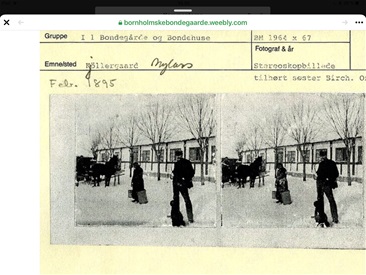 bornholmskebondegaarde.weebly.com
Gruppe
I 1 Bondegårde og Bondehuse
BM 1964 x 67
Fotograf & år
Emne/sted
Møllergaard Nylars
Stereoskopbillede
tilhørt søster Birch.
Febr. 1895